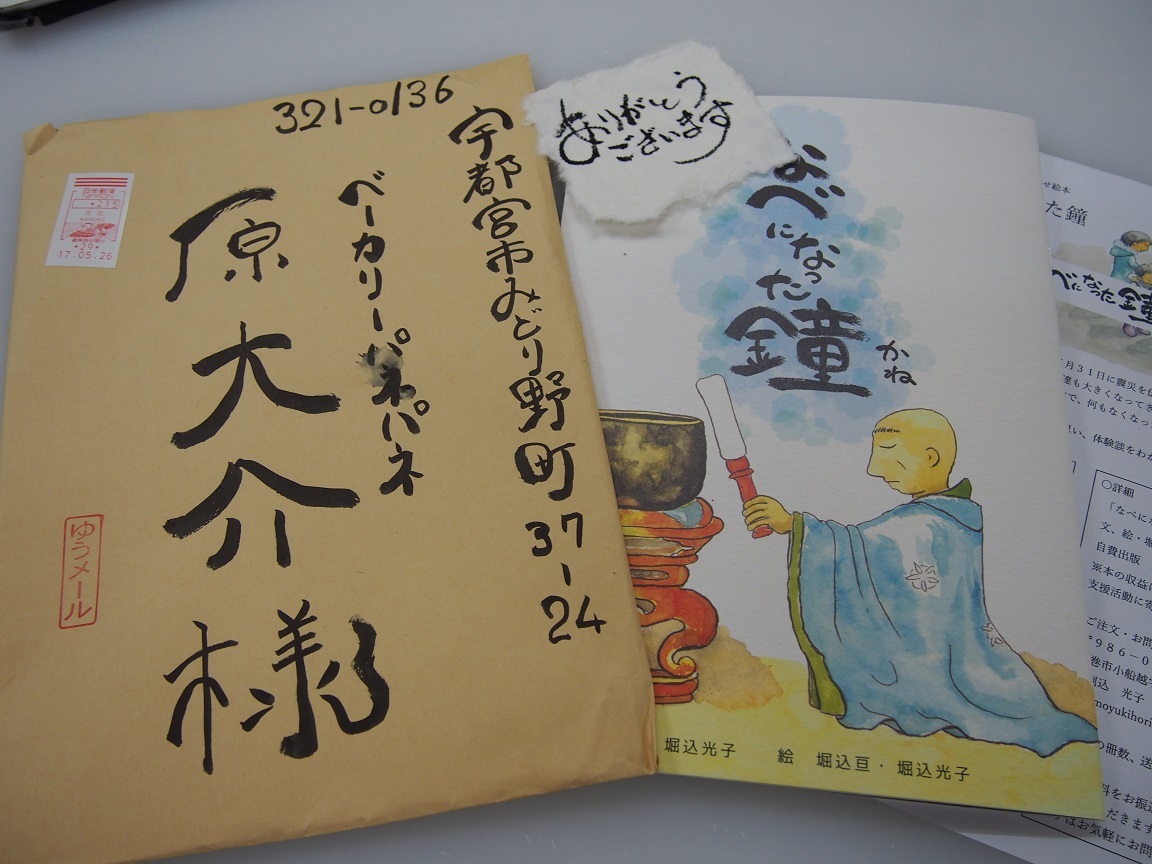 321-0136
宇都宮市みどり野町37-24
ベーカリーパネパネ
原大介様
ゆうメール
日本郵便
215
29
17.05.26
ありがとう
ございます
なべ
になっ
た
鐘
かね
堀込光子 絵 堀込亘・堀込光子
せ絵本
た鐘
べになった鐘
月31日に震災を
達も大きくなってき
で、何もなくなっ
体験談をわか
○詳細
「なべに
文、絵・堀
自費出版
※本の収益
支援活動に寄
ご注文・お問
〒986-0
巻市小船越
堀込 光子
moyukihori
の冊数、送
料をお振込
だきます
はお気軽にお問